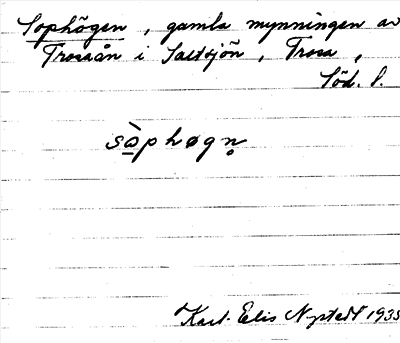 Sophögen, gamla mynningen av
Trosaån i Saltsjön, Trosa,
Söd. l.
sò̲phøgn̥
Karl-Elis Nystedt 1935